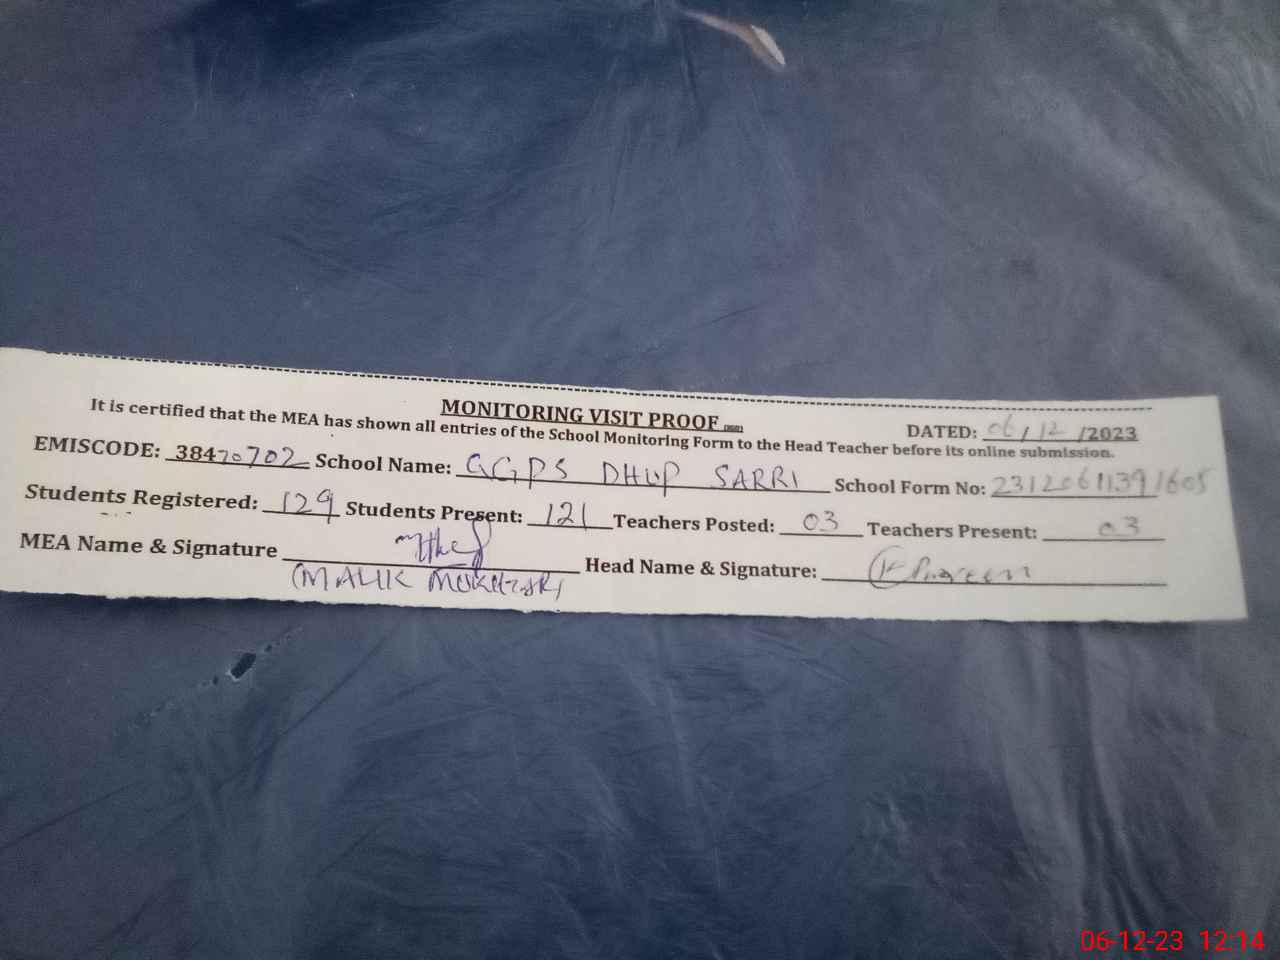 MONITORING VISIT PROOF
DATED: 06/12/2023
It is certified that the MEA has shown all entries of the School Monitoring Form to the Head Teacher before its online submission.
EMISCODE: 38470702 School Name: GGPS DHUP SARRI School Form No: 23120611391605
Students Registered: 129 Students Present: 121 Teachers Posted: 03 Teachers Present: 03
MEA Name & Signature Head Name & Signature:
(MALIK
06-12-23 12:14